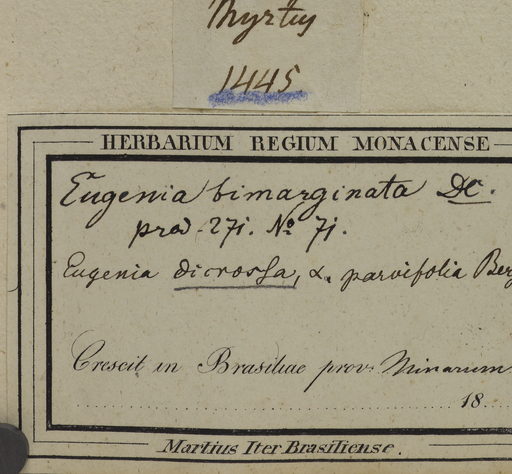 Myrtus
1445
HERBARIUM REGIUM MONACENSE
Eugenia bimarginata DC.
prod. 271. No 71.
Eugenia dicrossa, α. parvifolia Berg
Crescit in Brasiliae prov. Minarum
18
Martius Iter Brasiliense.